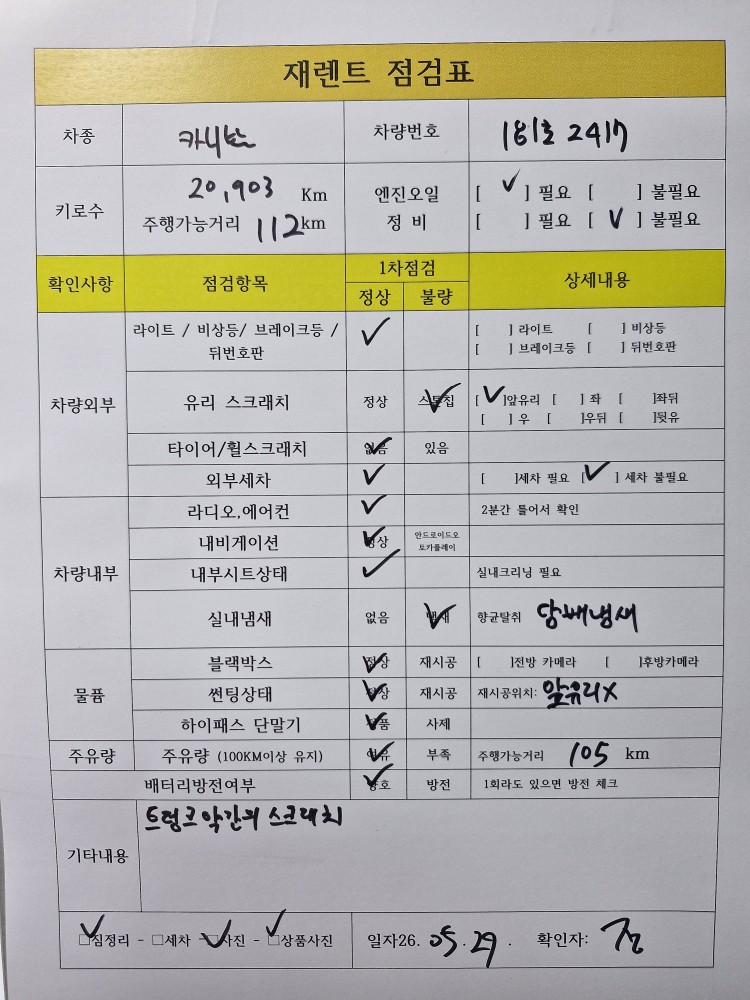 재렌트 점검표
차종 카니발 차량번호 181호 2417
키로수 20,903 Km 엔진오일 [ ✓ ] 필요 [ ] 불필요
주행가능거리 112km 정 비 [ ] 필요 [ ✓ ] 불필요
확인사항 점검항목 1차점검 상세내용
정상 불량
차량외부 라이트 / 비상등/ 브레이크등 / ✓ [ ] 라이트 [ ] 비상등
뒤번호판 [ ] 브레이크등 [ ] 뒤번호판
유리 스크래치 정상 스톤칩 ✓ [ ✓ ]앞유리 [ ] 좌 [ ]좌뒤
[ ] 우 [ ]우뒤 [ ]뒷유
타이어/휠스크래치 없음 ✓ 있음
외부세차 ✓ [ ]세차 필요 [ ✓ ] 세차 불필요
차량내부 라디오,에어컨 ✓ 2분간 틀어서 확인
내비게이션 정상 ✓ 안드로이드오
토카플레이
내부시트상태 ✓ 실내크리닝 필요
실내냄새 없음 냄새 ✓ 향균탈취 담배냄새
물품 블랙박스 정상 ✓ 재시공 [ ]전방 카메라 [ ]후방카메라
썬팅상태 정상 ✓ 재시공 재시공위치: 앞유리X
하이패스 단말기 ✓ 사제
주유량 주유량 (100KM이상 유지) 여유 ✓ 부족 주행가능거리 105 km
배터리방전여부 양호 ✓ 방전 1회라도 있으면 방전 체크
기타내용 트렁크 약간의 스크래치
☑짐정리 - □세차 - ☑사진 - ☑상품사진 일자26. 05. 29. 확인자: